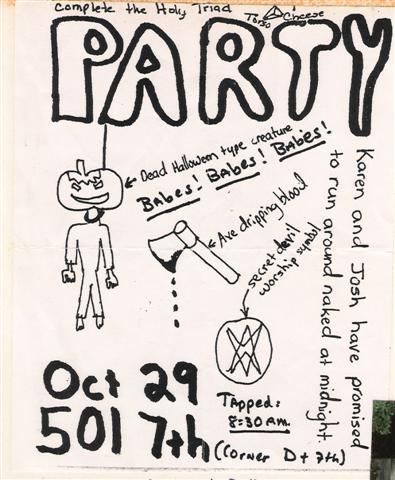 Complete the Holy Triad
Torso
Cheese
PARTY
Dead Halloween type creature
Babes! Babes! Babes!
Axe dripping blood
secret devil
worship symbol
Karen and Josh have promised
to run around naked at midnight.
Oct 29
501 7th (corner D + 7th)
Tapped:
8:30 Am.